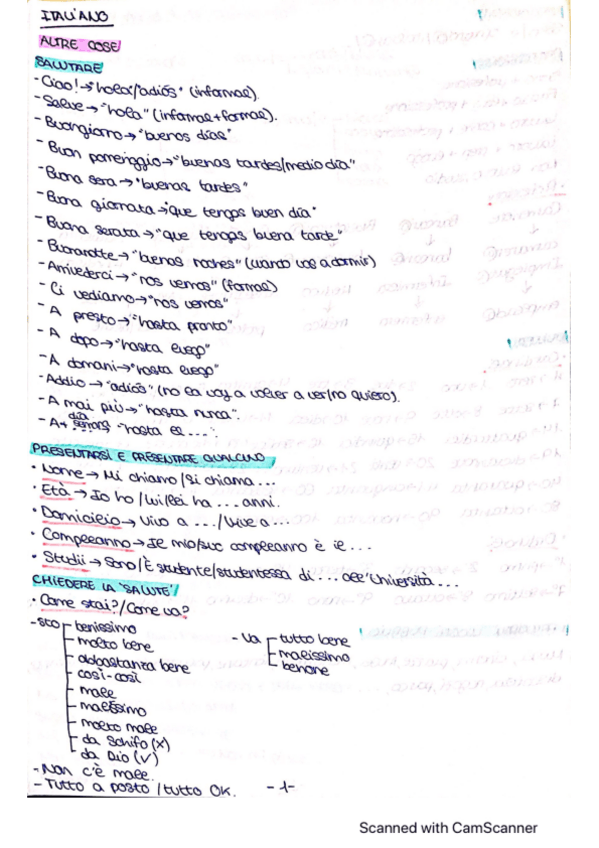 ITALIANO
ALTRE COSE
SALUTARE
- Ciao! → "hola/adiós" (informal).
- Salve → "hola" (informal + formal).
- Buongiorno → "buenos días"
- Buon pomeriggio → "buenas tardes/medio día"
- Buona sera → "buenas tardes"
- Buona giornata → "que tengas buen día"
- Buona serata → "que tengas buena tarde"
- Buonanotte → "buenas noches" (cuando vas a dormir)
- Arrivederci → "nos vemos" (formal)
- Ci vediamo → "nos vemos"
- A presto → "hasta pronto"
- A dopo → "hasta luego"
- A domani → "hasta luego"
- Addio → "adiós" (no la voy a volver a ver/no quiero).
- A mai più → "hasta nunca".
- A + día semana "hasta el ...
PRESENTARSI E PRESENTARE QUALCUNO
· Nome → Mi chiamo / Si chiama ...
· Età → Io ho / lui/lei ha ... anni.
· Domicilio → Vivo a ... / Vive a ...
· Compleanno → Il mio/suo compleanno è il ...
· Studi → Sono/È studente/studentessa di ... all'Università ...
CHIEDERE LA "SALUTE"
· Come stai? / Come va?
- Sto benissimo
molto bene
abbastanza bene
così-così
male
malissimo
molto male
da schifo (x)
da Dio (✓)
- Va tutto bene
malissimo
benone
- Non c'è male.
- Tutto a posto / tutto OK.
-1-
Scanned with CamScanner